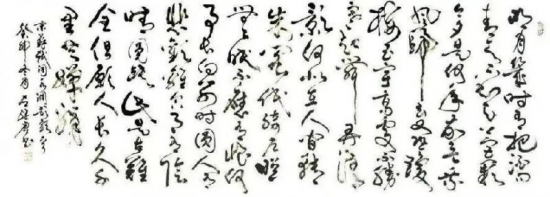 明月幾時有把酒問
青天不知天上宮闕
今夕是何年我欲乘
風歸去又恐瓊
樓玉宇高處不勝
寒起舞弄清
影何似在人間轉
朱閣低綺戶照
無眠不應有恨何
事長向別時圓人有
悲歡離合月有陰
晴圓缺此事古難
全但願人長久千
里共嬋娟
蘇軾詞水調歌頭